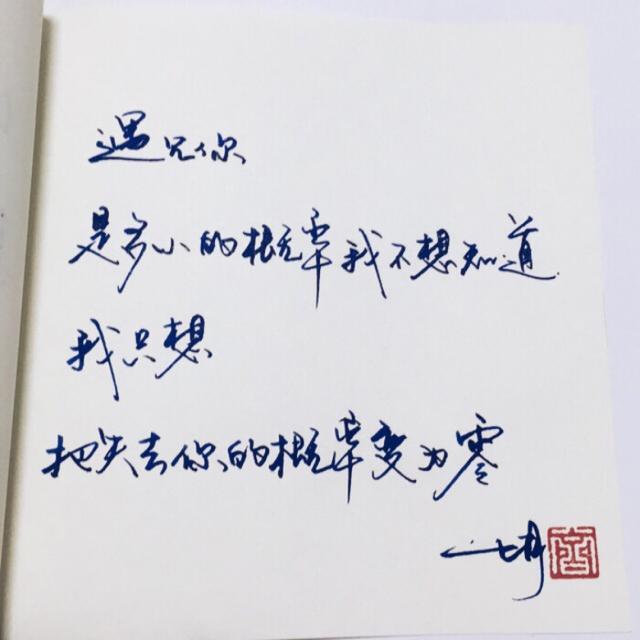 遇见你
是多小的概率我不想知道
我只想
把失去你的概率变为零